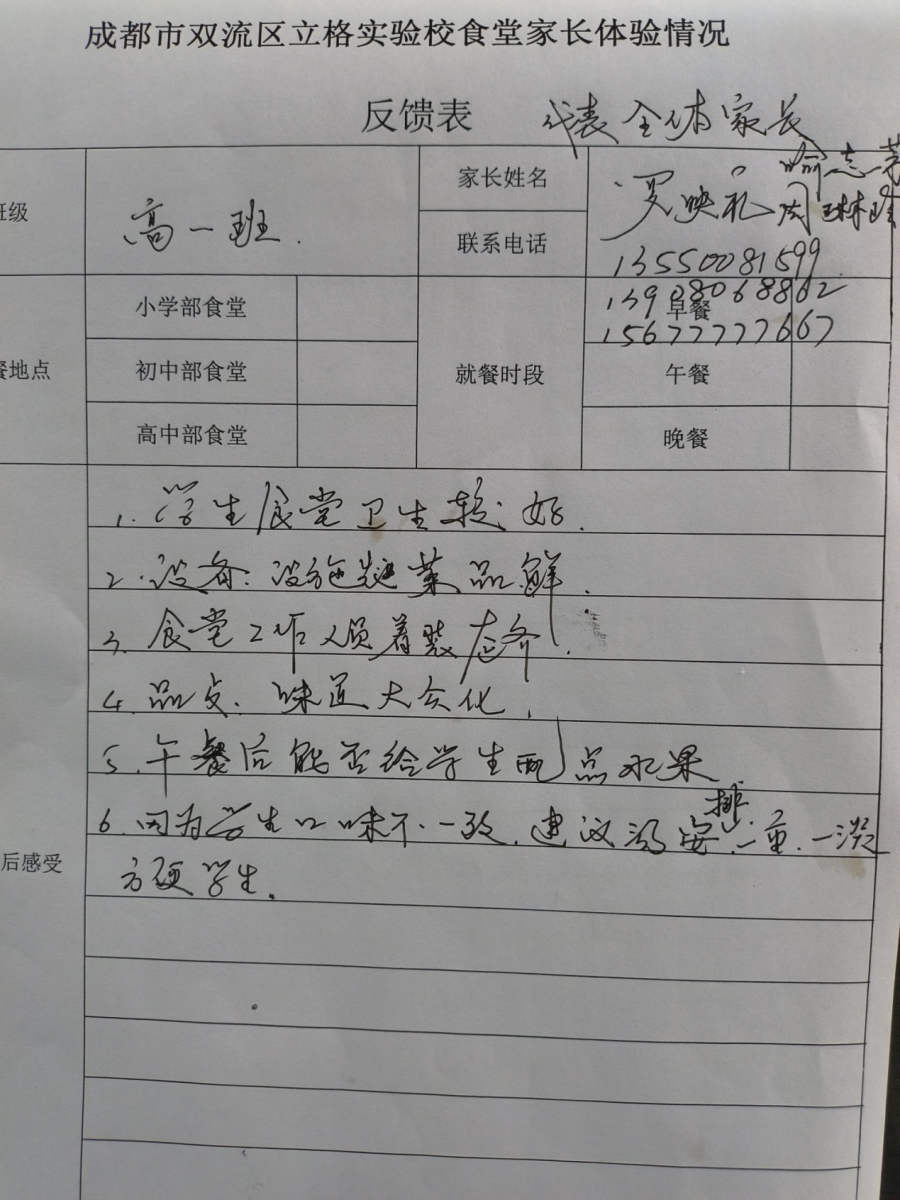 成都市双流区立格实验校食堂家长体验情况
反馈表 代表全体家长
班级
高一班.
家长姓名
罗映礼 喻志芳
周琳玲
联系电话
13550081599
13908068862
15677777667
餐地点
小学部食堂
初中部食堂
高中部食堂
就餐时段
早餐
午餐
晚餐
后感受
1. 学生食堂卫生较好.
2. 设备.设施 菜品鲜.
3. 食堂工作人员着装 齐.
4. 品 . 味道大众化.
5. 午餐后能否给学生配点水果
6. 因为学生口味不一致.建议 安排一重.一淡
方便学生.